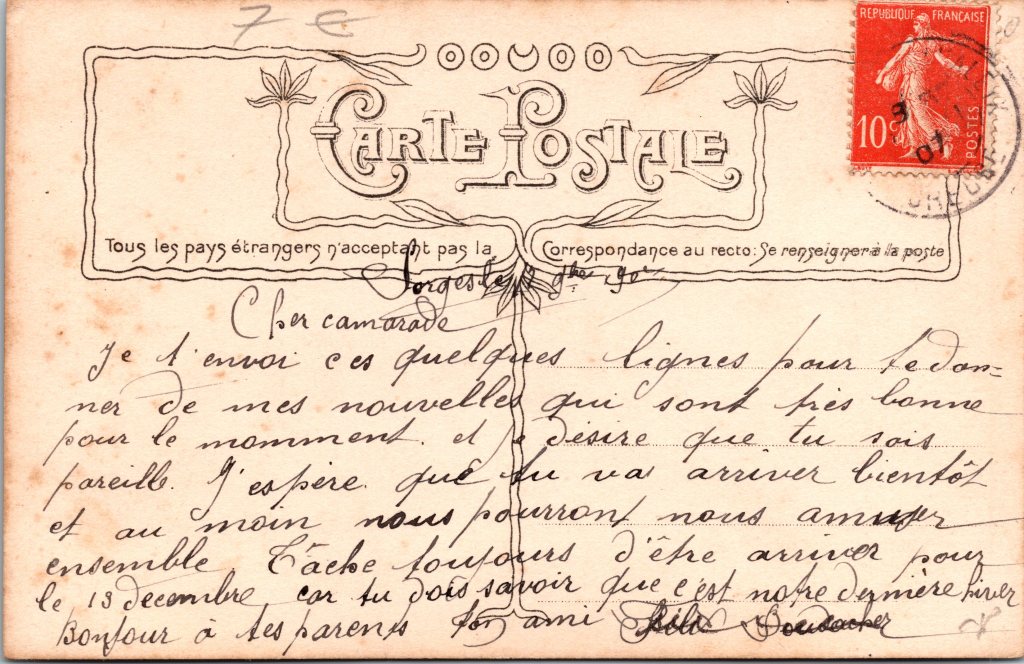 7 €
RÉPUBLIQUE FRANÇAISE
10c
POSTES
07
CREUSE
CARTE POSTALE
Tous les pays étrangers n'acceptant pas la Correspondance au recto: Se renseigner à la poste
le 9bre
Cher camarade
Je t'envoi ces quelques lignes pour te don=
ner de mes nouvelles qui sont très bonne
pour le momment. et je désire que tu sois
pareille. J'espère que tu va arriver bientôt
et au moin nous pourront nous amuser
ensemble Tâche toujours d'être arriver pour
le 13 decembre car tu dois savoir que c'est notre dernière hiver
Bonjour à tes parents Ton ami